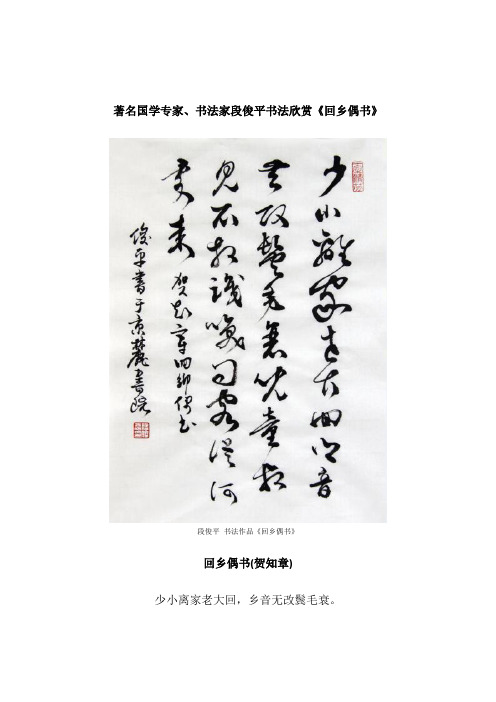 著名国学专家、书法家段俊平书法欣赏《回乡偶书》
少小離家老大回鄉音
无改鬢毛衰兒童相
見不相識咲问客從何
處来 賀知章回鄉偶书
俊平書于京麓書院
段俊平 书法作品《回乡偶书》
回乡偶书(贺知章)
少小离家老大回，乡音无改鬓毛衰。